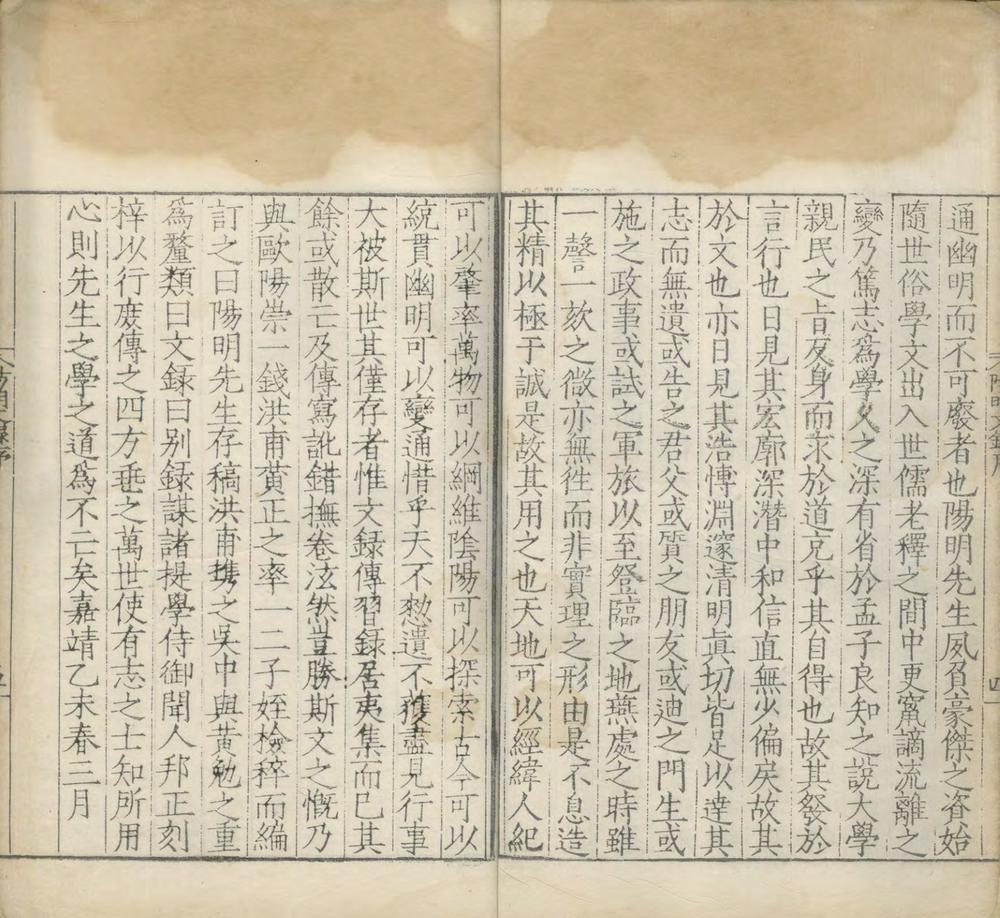 通幽明而不可廢者也陽明先生夙負豪傑之資始
隨世俗學文出入世儒老釋之間中更竄謫流離之
變乃篤志為學久之深有省於孟子良知之說大學
親民之旨反身而求於道充乎其自得也故其發於
言行也日見其宏廓深潛中和信直無少偏戾故其
於文也亦日見其浩博淵邃清明真切皆足以達其
志而無遺或告之君父或質之朋友或迪之門生或
施之政事或試之軍旅以至登臨之地燕處之時雖
一謦一欬之微亦無徃而非實理之形由是不息造
其精以極于誠是故其用之也天地可以經緯人紀
可以肇率萬物可以綱維陰陽可以探索古今可以
統貫幽明可以變通惜乎天不憖遺不獲盡見行事
大被斯世其僅存者惟文録傳習録居夷集而已其
餘或散亡及傳寫訛錯撫卷泫然豈勝斯文之慨乃
與歐陽崇一錢洪甫黄正之率一二子姪檢稡而編
訂之曰陽明先生存稿洪甫携之吳中與黄勉之重
為釐類曰文録曰别録謀諸提學侍御聞人邦正刻
梓以行庻傳之四方垂之萬世使有志之士知所用
心則先生之學之道為不亡矣嘉靖乙未春三月